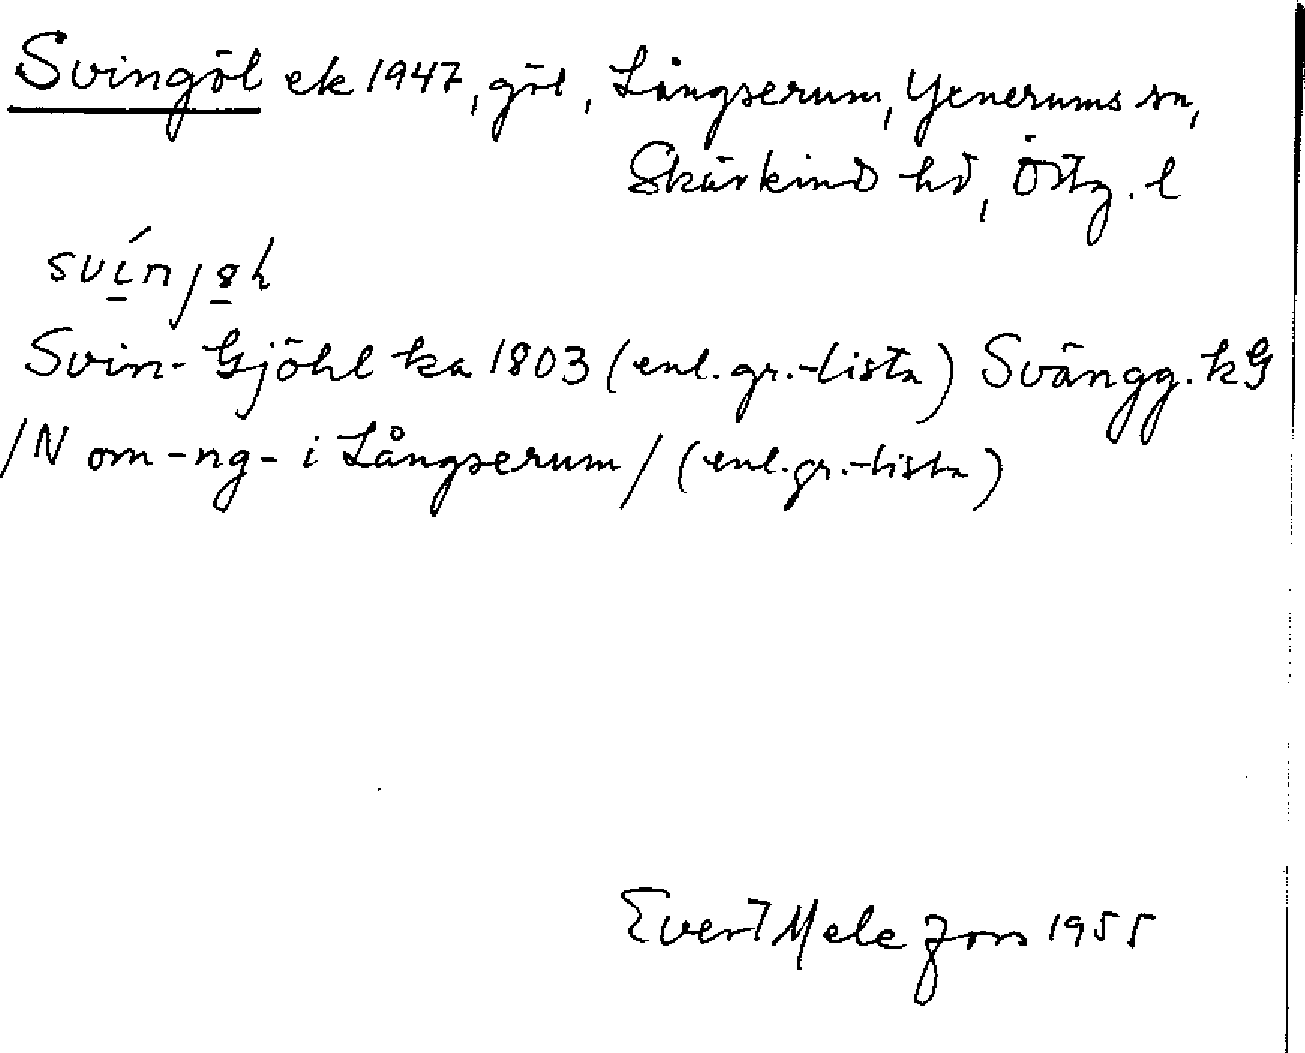 Svingöl ek 1947, göl, Långserum, Yxnerums sn,
Skärkind hd, Östg. l
svínjöl
Svin-Gjöhl ka 1803 (enl. gr.-lista) Svängg. kG
/N om -ng- i Långserum/ (enl. gr.-lista)
Evert Melefors 1955